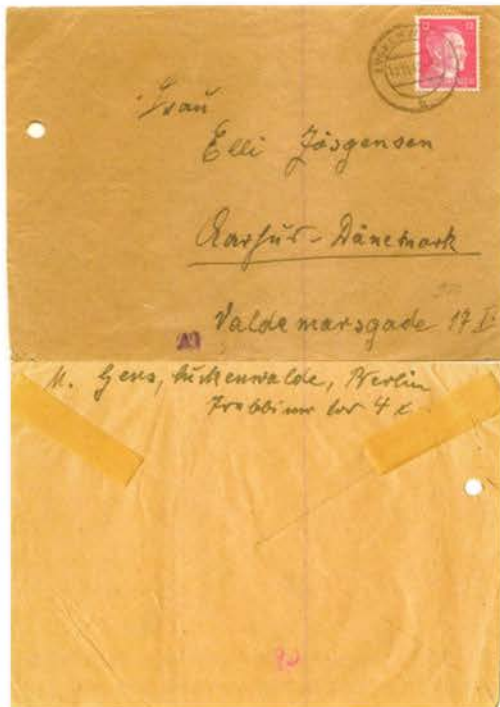 12 12
Frau
Elli Jörgensen
Aarhus-Dänemark
Valdemarsgade 17 I.
M. Gers, Luckenwalde, Berlin
Trebbiner Tor 4